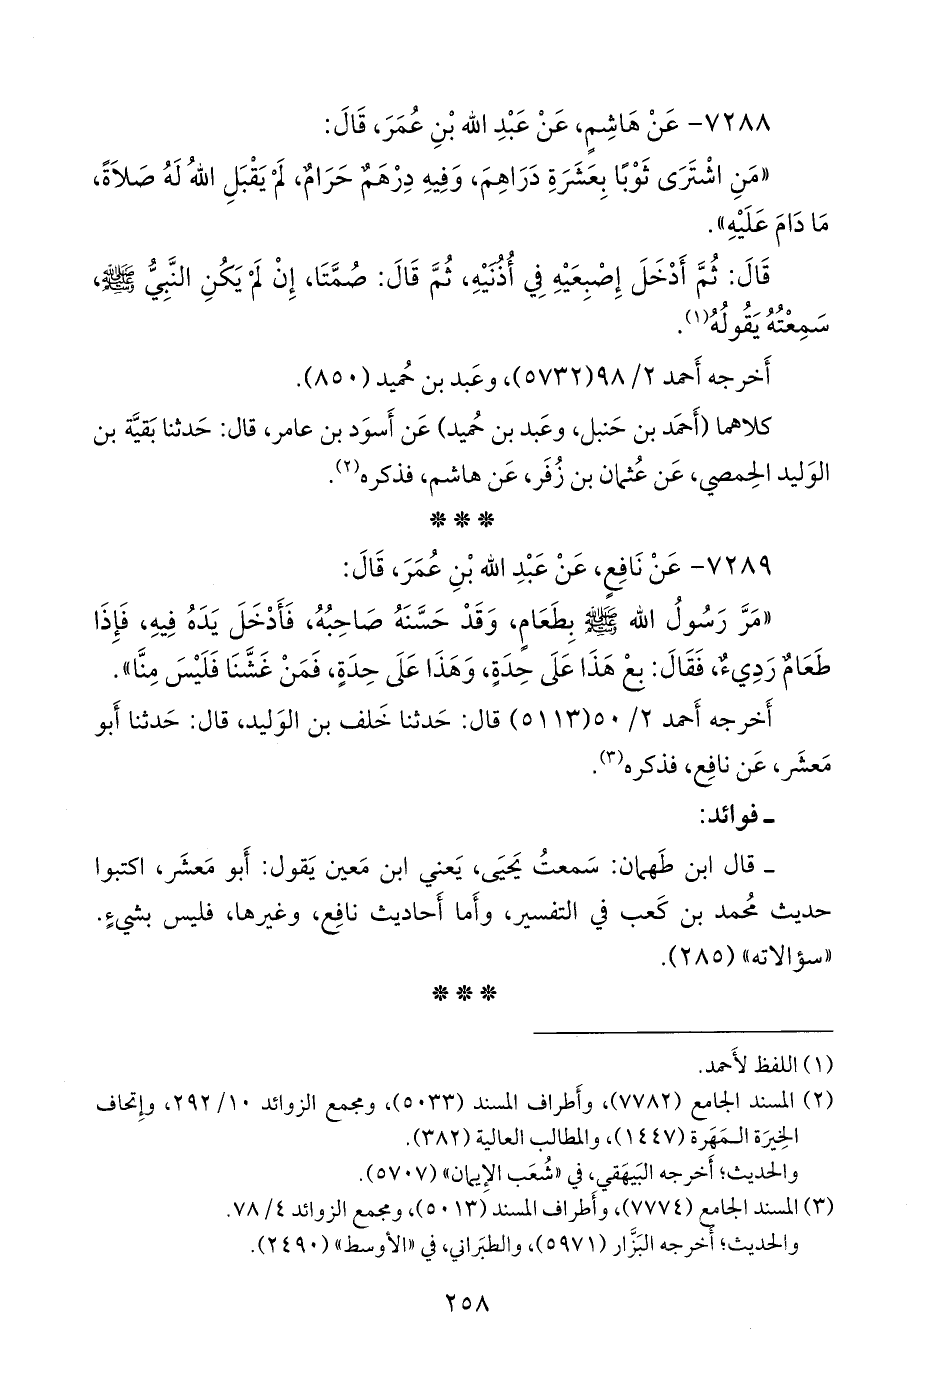 ٧٢٨٨- عَنْ هَاشِمٍ، عَنْ عَبْدِ الله بْنِ عُمَرَ، قَالَ:
«مَنِ اشْتَرَى ثَوْبًا بِعَشَرَةِ دَرَاهِمَ، وَفِيهِ دِرْهَمٌ حَرَامٌ، لَمْ يَقْبَلِ اللهُ لَهُ صَلَاةً،
مَا دَامَ عَلَيْهِ».
قَالَ: ثُمَّ أَدْخَلَ إِصْبِعَيْهِ فِي أُذُنَيْهِ، ثُمَّ قَالَ: صُمَّتَا، إِنْ لَمْ يَكُنِ النَّبِيُّ ﷺ،
سَمِعْتُهُ يَقُولُهُ(١).
أَخرجه أَحمد ٢/ ٩٨(٥٧٣٢)، وعَبد بن حُميد (٨٥٠).
كلاهما (أَحمَد بن حَنبل، وعَبد بن حُميد) عَن أَسوَد بن عامر، قال: حَدثنا بَقيَّة بن
الوَليد الحِمصي، عَن عُثمان بن زُفَر، عَن هاشم، فذكره(٢).
* * *
٧٢٨٩- عَنْ نَافِعٍ، عَنْ عَبْدِ الله بْنِ عُمَرَ، قَالَ:
«مَرَّ رَسُولُ الله ﷺ بِطَعَامٍ، وَقَدْ حَسَّنَهُ صَاحِبُهُ، فَأَدْخَلَ يَدَهُ فِيهِ، فَإِذَا
طَعَامٌ رَدِيءٌ، فَقَالَ: بِعْ هَذَا عَلَى حِدَةٍ، وَهَذَا عَلَى حِدَةٍ، فَمَنْ غَشَّنَا فَلَيْسَ مِنَّا».
أَخرجه أَحمد ٢/ ٥٠(٥١١٣) قال: حَدثنا خَلف بن الوَليد، قال: حَدثنا أَبو
مَعشَر، عَن نافِع، فذكره(٣).
ـ فوائد:
ـ قال ابن طَهمان: سَمعتُ يَحيَى، يَعني ابن مَعين يَقول: أَبو مَعشَر، اكتبوا
حديث مُحمد بن كَعب في التفسير، وأَما أَحاديث نافِع، وغيرها، فليس بشيءٍ.
«سؤالاته» (٢٨٥).
* * *
(١) اللفظ لأَحمد.
(٢) المسند الجامع (٧٧٨٢)، وأَطراف المسند (٥٠٣٣)، ومجمع الزوائد ١٠/ ٢٩٢، وإتحاف
الخِيرَة الـمَهَرة (١٤٤٧)، والمطالب العالية (٣٨٢).
والحديث؛ أَخرجه البَيهَقي، في «شُعَب الإيمان» (٥٧٠٧).
(٣) المسند الجامع (٧٧٧٤)، وأَطراف المسند (٥٠١٣)، ومجمع الزوائد ٤/ ٧٨.
والحديث؛ أَخرجه البَزَّار (٥٩٧١)، والطبَراني، في «الأَوسط» (٢٤٩٠).
٢٥٨